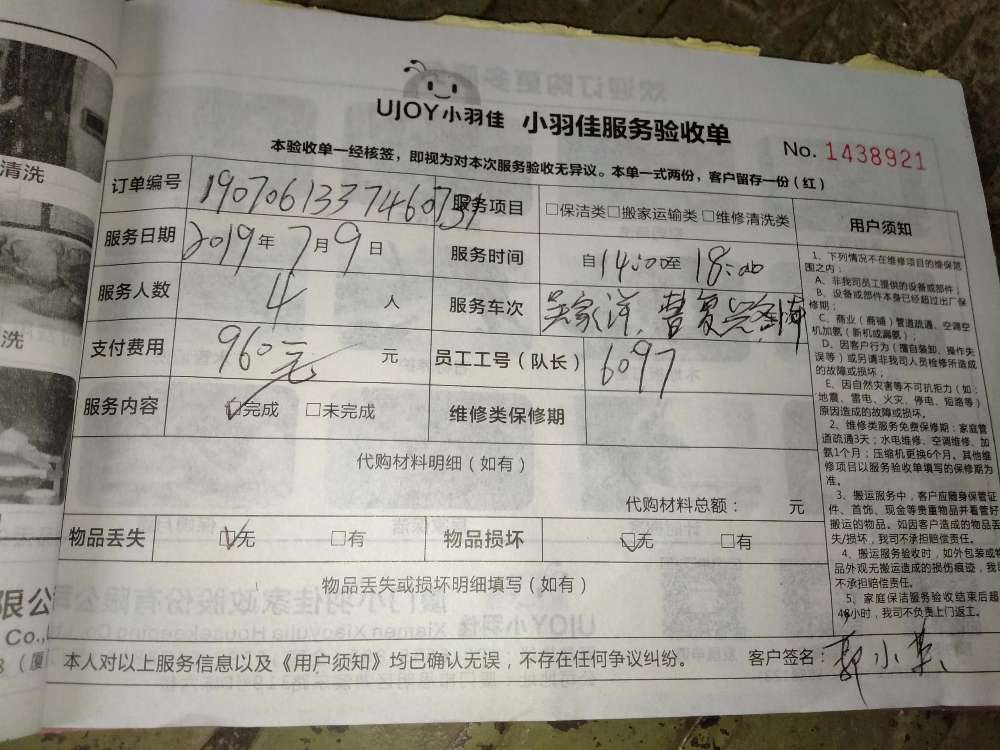 清洗
洗
限公
Co.,
UJOY小羽佳 小羽佳服务验收单
No. 1438921
本验收单一经核签，即视为对本次服务验收无异议。本单一式两份，客户留存一份（红）
订单编号 服务项目 □保洁类□搬家运输类 □维修清洗类
服务日期 2019年 7月9日 服务时间 自14:00至 18:00
服务人数 4 人 服务车次
支付费用 960元 元 员工工号（队长） 6097
服务内容 ☑完成 □未完成 维修类保修期
代购材料明细（如有）
代购材料总额： 元
物品丢失 ☑无 □有 物品损坏 ☑无 □有
物品丢失或损坏明细填写（如有）
本人对以上服务信息以及《用户须知》均已确认无误，不存在任何争议纠纷。 客户签名：
用户须知
1、下列情况不在维修项目的维保范
围之内：
A、非我司员工提供的设备或部件；
B、设备或部件本身已经超过出厂保
修期；
C、商业（商铺）管道疏通、空调空
机加氨（新机或漏氨）；
D、因客户行为（擅自装卸、操作失
误等）或另请非我司人员检修所造成
的故障或损坏；
E、因自然灾害等不可抗拒力（如：
地震、雷电、火灾、停电、短路等）
原因造成的故障或损坏。
2、维修类服务免费保修期：家庭管
道疏通3天；水电维修、空调维修、加
氨1个月；压缩机更换6个月。其他维
修项目以服务验收单填写的保修期为
准。
3、搬运服务中，客户应随身保管证
件、首饰、现金等贵重物品并看管好
搬运的物品。如因客户造成的物品丢
失/损坏，我司不承担赔偿责任。
4、搬运服务验收时，如外包装或物
品外观无搬运造成的损伤痕迹，我司
不承担赔偿责任。
5、家庭保洁服务验收结束后超
48小时，我司不负责上门返工。